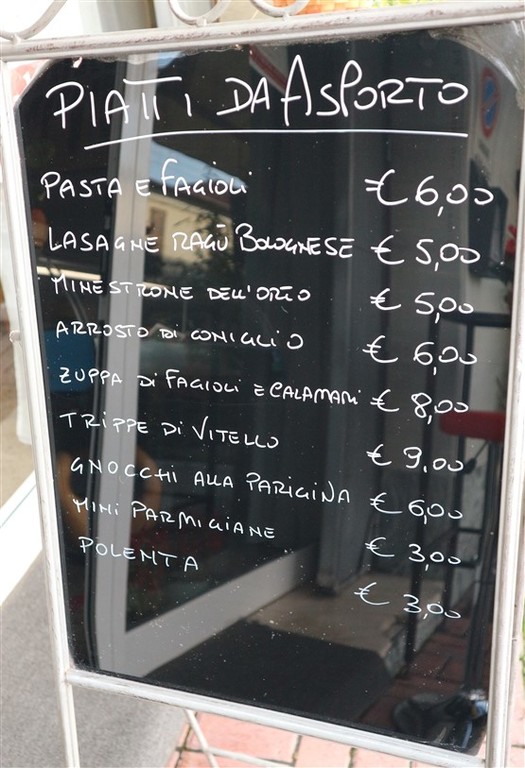 PIATTI DA ASPORTO
PASTA E FAGIOLI € 6,00
LASAGNE RAGÙ BOLOGNESE € 5,00
MINESTRONE DELL'ORTO € 5,00
ARROSTO DI CONIGLIO € 6,00
ZUPPA DI FAGIOLI E CALAMARI € 8,00
TRIPPE DI VITELLO € 9,00
GNOCCHI ALLA PARIGINA € 6,00
MINI PARMIGIANE € 3,00
POLENTA € 3,00